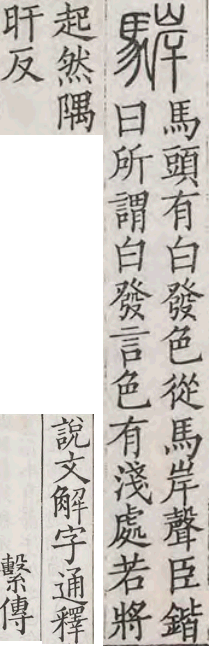 馬岸 馬頭有白發色從馬岸聲臣鍇
曰所謂白發言色有淺處若將
起然隅
旰反
說文解字通釋
繫傳